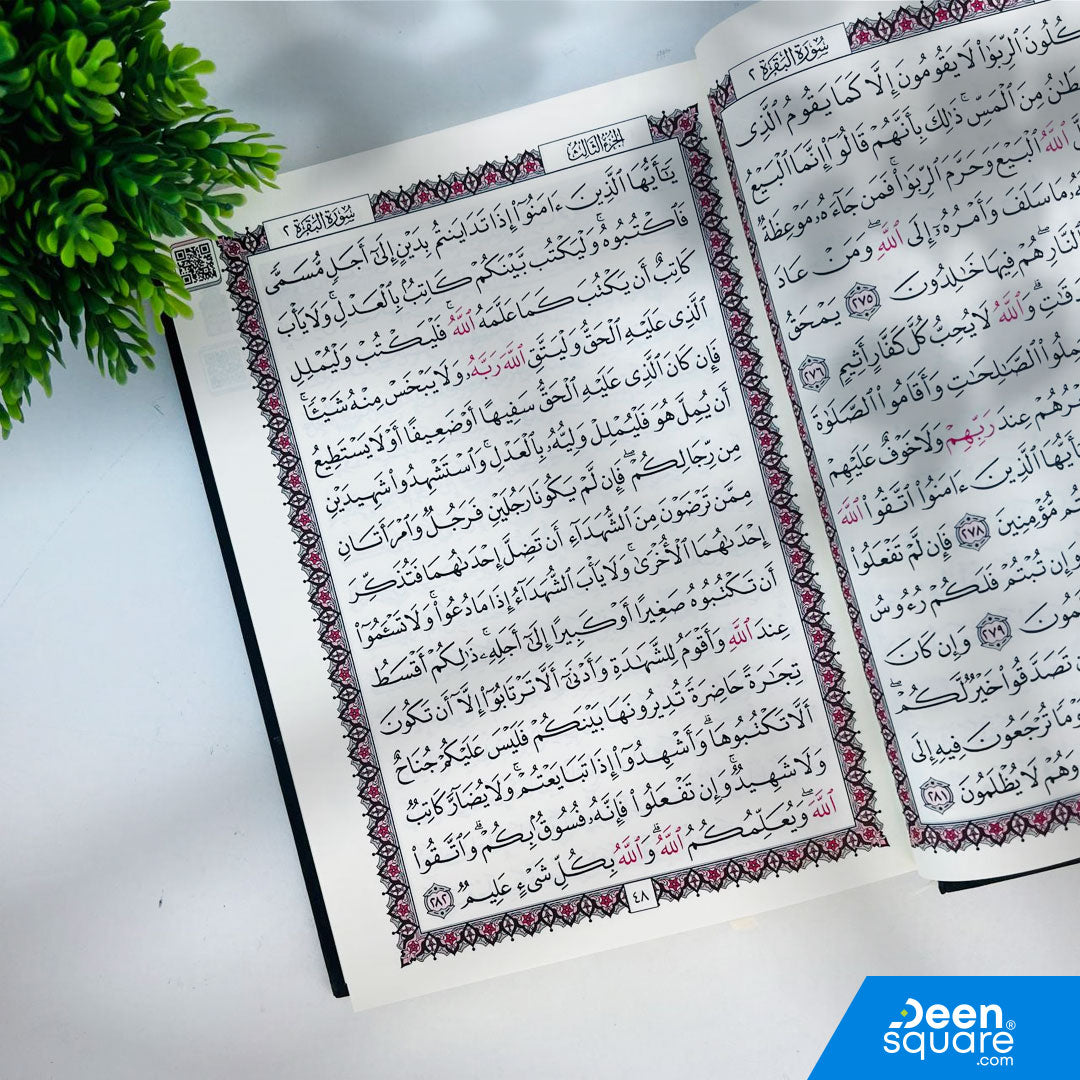 سُورَةُ البَقَرَةِ ٢
كُلُونَ ٱلرِّبَوٰا۟ لَا يَقُومُونَ إِلَّا كَمَا يَقُومُ ٱلَّذِى
مِنَ ٱلْمَسِّ ۚ ذَٰلِكَ بِأَنَّهُمْ قَالُوٓا۟ إِنَّمَا ٱلْبَيْعُ
ٱللَّهُ ٱلْبَيْعَ وَحَرَّمَ ٱلرِّبَوٰا۟ ۚ فَمَن جَآءَهُۥ مَوْعِظَةٌ
مَا سَلَفَ وَأَمْرُهُۥٓ إِلَى ٱللَّهِ ۖ وَمَنْ عَادَ
ٱلنَّارِ ۖ هُمْ فِيهَا خَـٰلِدُونَ ٢٧٥ يَمْحَقُ
وَٱللَّهُ لَا يُحِبُّ كُلَّ كَفَّارٍ أَثِيمٍ ٢٧٦
ٱلصَّـٰلِحَـٰتِ وَأَقَامُوا۟ ٱلصَّلَوٰةَ
عِندَ رَبِّهِمْ وَلَا خَوْفٌ عَلَيْهِمْ
ٱلَّذِينَ ءَامَنُوا۟ ٱتَّقُوا۟ ٱللَّهَ
مُّؤْمِنِينَ ٢٧٨ فَإِن لَّمْ تَفْعَلُوا۟
وَإِن تُبْتُمْ فَلَكُمْ رُءُوسُ
٢٧٩ وَإِن كَانَ
تَصَدَّقُوا۟ خَيْرٌ لَّكُمْ ۖ
تُرْجَعُونَ فِيهِ إِلَى
وَهُمْ لَا يُظْلَمُونَ ٢٨١
الجُزْءُ الثَّالِثُ
سُورَةُ البَقَرَةِ ٢
يَـٰٓأَيُّهَا ٱلَّذِينَ ءَامَنُوٓا۟ إِذَا تَدَايَنتُم بِدَيْنٍ إِلَىٰٓ أَجَلٍ مُّسَمًّى
فَٱكْتُبُوهُ ۚ وَلْيَكْتُب بَّيْنَكُمْ كَاتِبٌۢ بِٱلْعَدْلِ ۚ وَلَا يَأْبَ
كَاتِبٌ أَن يَكْتُبَ كَمَا عَلَّمَهُ ٱللَّهُ ۚ فَلْيَكْتُبْ وَلْيُمْلِلِ
ٱلَّذِى عَلَيْهِ ٱلْحَقُّ وَلْيَتَّقِ ٱللَّهَ رَبَّهُۥ وَلَا يَبْخَسْ مِنْهُ شَيْـًٔا ۚ
فَإِن كَانَ ٱلَّذِى عَلَيْهِ ٱلْحَقُّ سَفِيهًا أَوْ ضَعِيفًا أَوْ لَا يَسْتَطِيعُ
أَن يُمِلَّ هُوَ فَلْيُمْلِلْ وَلِيُّهُۥ بِٱلْعَدْلِ ۚ وَٱسْتَشْهِدُوا۟ شَهِيدَيْنِ
مِن رِّجَالِكُمْ ۖ فَإِن لَّمْ يَكُونَا رَجُلَيْنِ فَرَجُلٌ وَٱمْرَأَتَانِ
مِمَّن تَرْضَوْنَ مِنَ ٱلشُّهَدَآءِ أَن تَضِلَّ إِحْدَىٰهُمَا فَتُذَكِّرَ
إِحْدَىٰهُمَا ٱلْأُخْرَىٰ ۚ وَلَا يَأْبَ ٱلشُّهَدَآءُ إِذَا مَا دُعُوا۟ ۚ وَلَا تَسْـَٔمُوٓا۟
أَن تَكْتُبُوهُ صَغِيرًا أَوْ كَبِيرًا إِلَىٰٓ أَجَلِهِۦ ۚ ذَٰلِكُمْ أَقْسَطُ
عِندَ ٱللَّهِ وَأَقْوَمُ لِلشَّهَـٰدَةِ وَأَدْنَىٰٓ أَلَّا تَرْتَابُوٓا۟ ۖ إِلَّآ أَن تَكُونَ
تِجَـٰرَةً حَاضِرَةً تُدِيرُونَهَا بَيْنَكُمْ فَلَيْسَ عَلَيْكُمْ جُنَاحٌ
أَلَّا تَكْتُبُوهَا ۗ وَأَشْهِدُوٓا۟ إِذَا تَبَايَعْتُمْ ۚ وَلَا يُضَآرَّ كَاتِبٌ
وَلَا شَهِيدٌ ۚ وَإِن تَفْعَلُوا۟ فَإِنَّهُۥ فُسُوقٌۢ بِكُمْ ۗ وَٱتَّقُوا۟
ٱللَّهَ ۖ وَيُعَلِّمُكُمُ ٱللَّهُ ۗ وَٱللَّهُ بِكُلِّ شَىْءٍ عَلِيمٌ ٢٨٢
٤٨
Deen
square®
.com